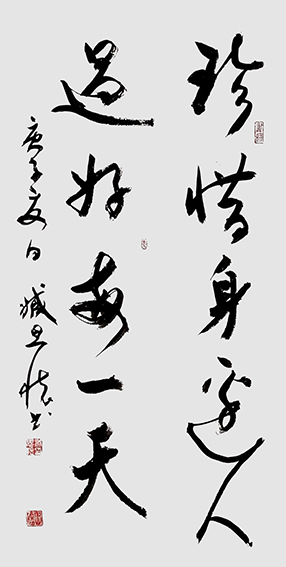 珍惜身边人
过好每一天
庚子夏日 臧思怀书